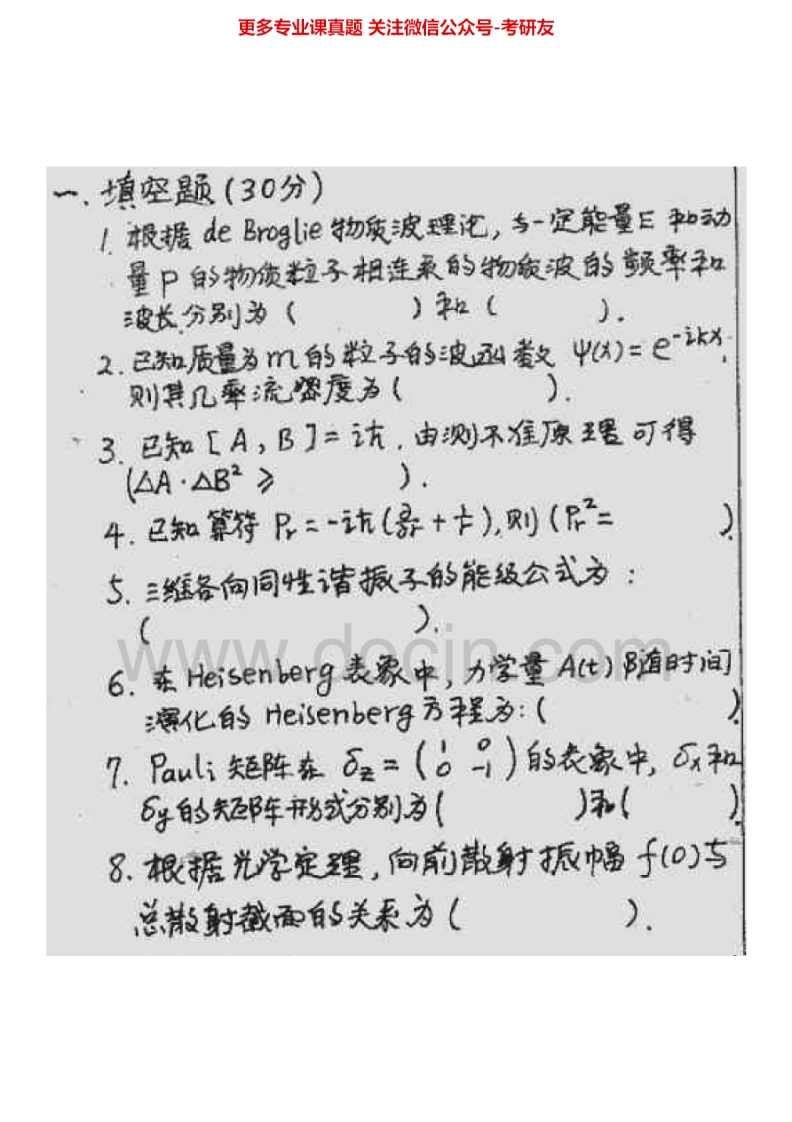 更多专业课真题 关注微信公众号-考研友
一、填空题(30分)
1. 根据 de Broglie 物质波理论, 与一定能量E 和动
量 P 的物质粒子相连系的物质波的频率和
波长分别为 ( ) 和 ( ).
2. 已知质量为 m 的粒子的波函数 ψ(x) = e^{-ikx},
则其几率流密度为 ( ).
3. 已知 [A, B] = iħ, 由测不准原理可得
(ΔA·ΔB² ≥ ).
4. 已知算符 Pr = -iħ(∂/∂r + 1/r), 则 (Pr² = )
5. 三维各向同性谐振子的能级公式为:
( ).
6. 在 Heisenberg 表象中, 力学量 A(t) 随时间
演化的 Heisenberg 方程为: ( ).
7. Pauli 矩阵在 δz = (1 0 0 -1) 的表象中, δx 和
δy 的矩阵形式分别为 ( ) 和 ( ).
8. 根据光学定理, 向前散射振幅 f(0) 与
总散射截面的关系为 ( ).
www.docin.com